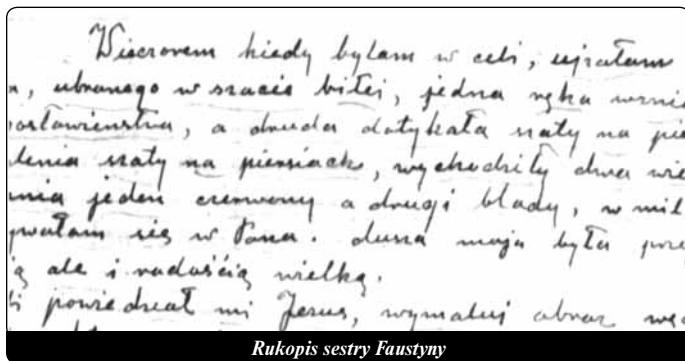 Wieczorem kiedy byłam w celi, ujrzałam
a, ubranego w szacie białej, jedna ręka wznie
osławieństwa, a druga dotykała szaty na pie
lenia szaty na piersiach, wychodziły dwa wie
nia jeden czerwony a drugi blady, w mil
ywałam się w Pana. dusza moja była prze
ią ale i radością wielką.
li powiedział mi Jezus, wymaluj obraz we
Rukopis sestry Faustyny